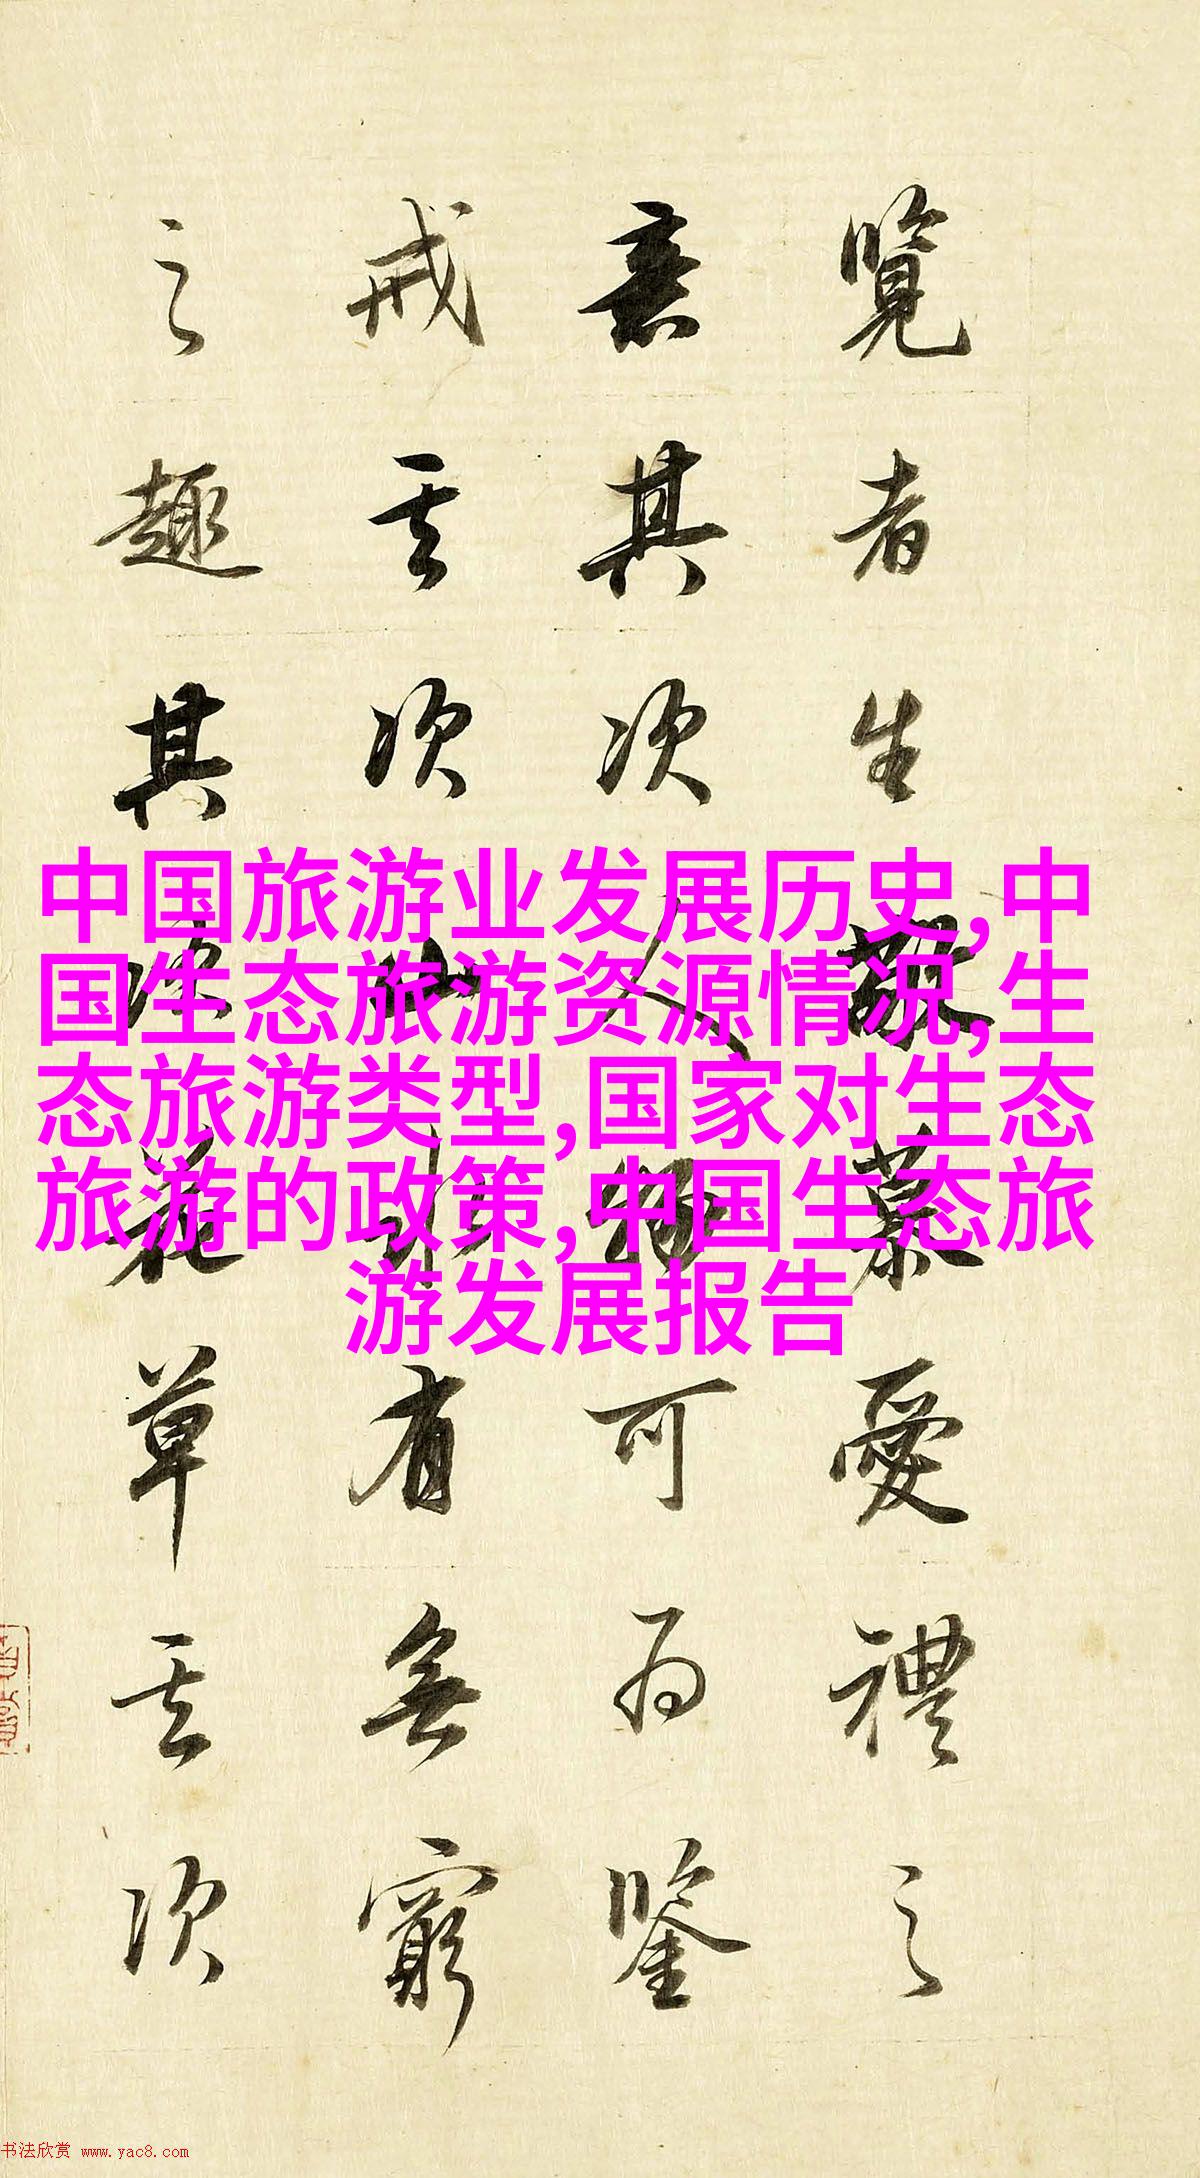 覽者生敬慕愛禮之
意其次人物可為鑒
戒其次山水有無窮
之趣其次花草其次
中国旅游业发展历史,中
国生态旅游资源情况,生
态旅游类型,国家对生态
旅游的政策,中国生态旅
游发展报告
书法欣赏 www.yac8.com